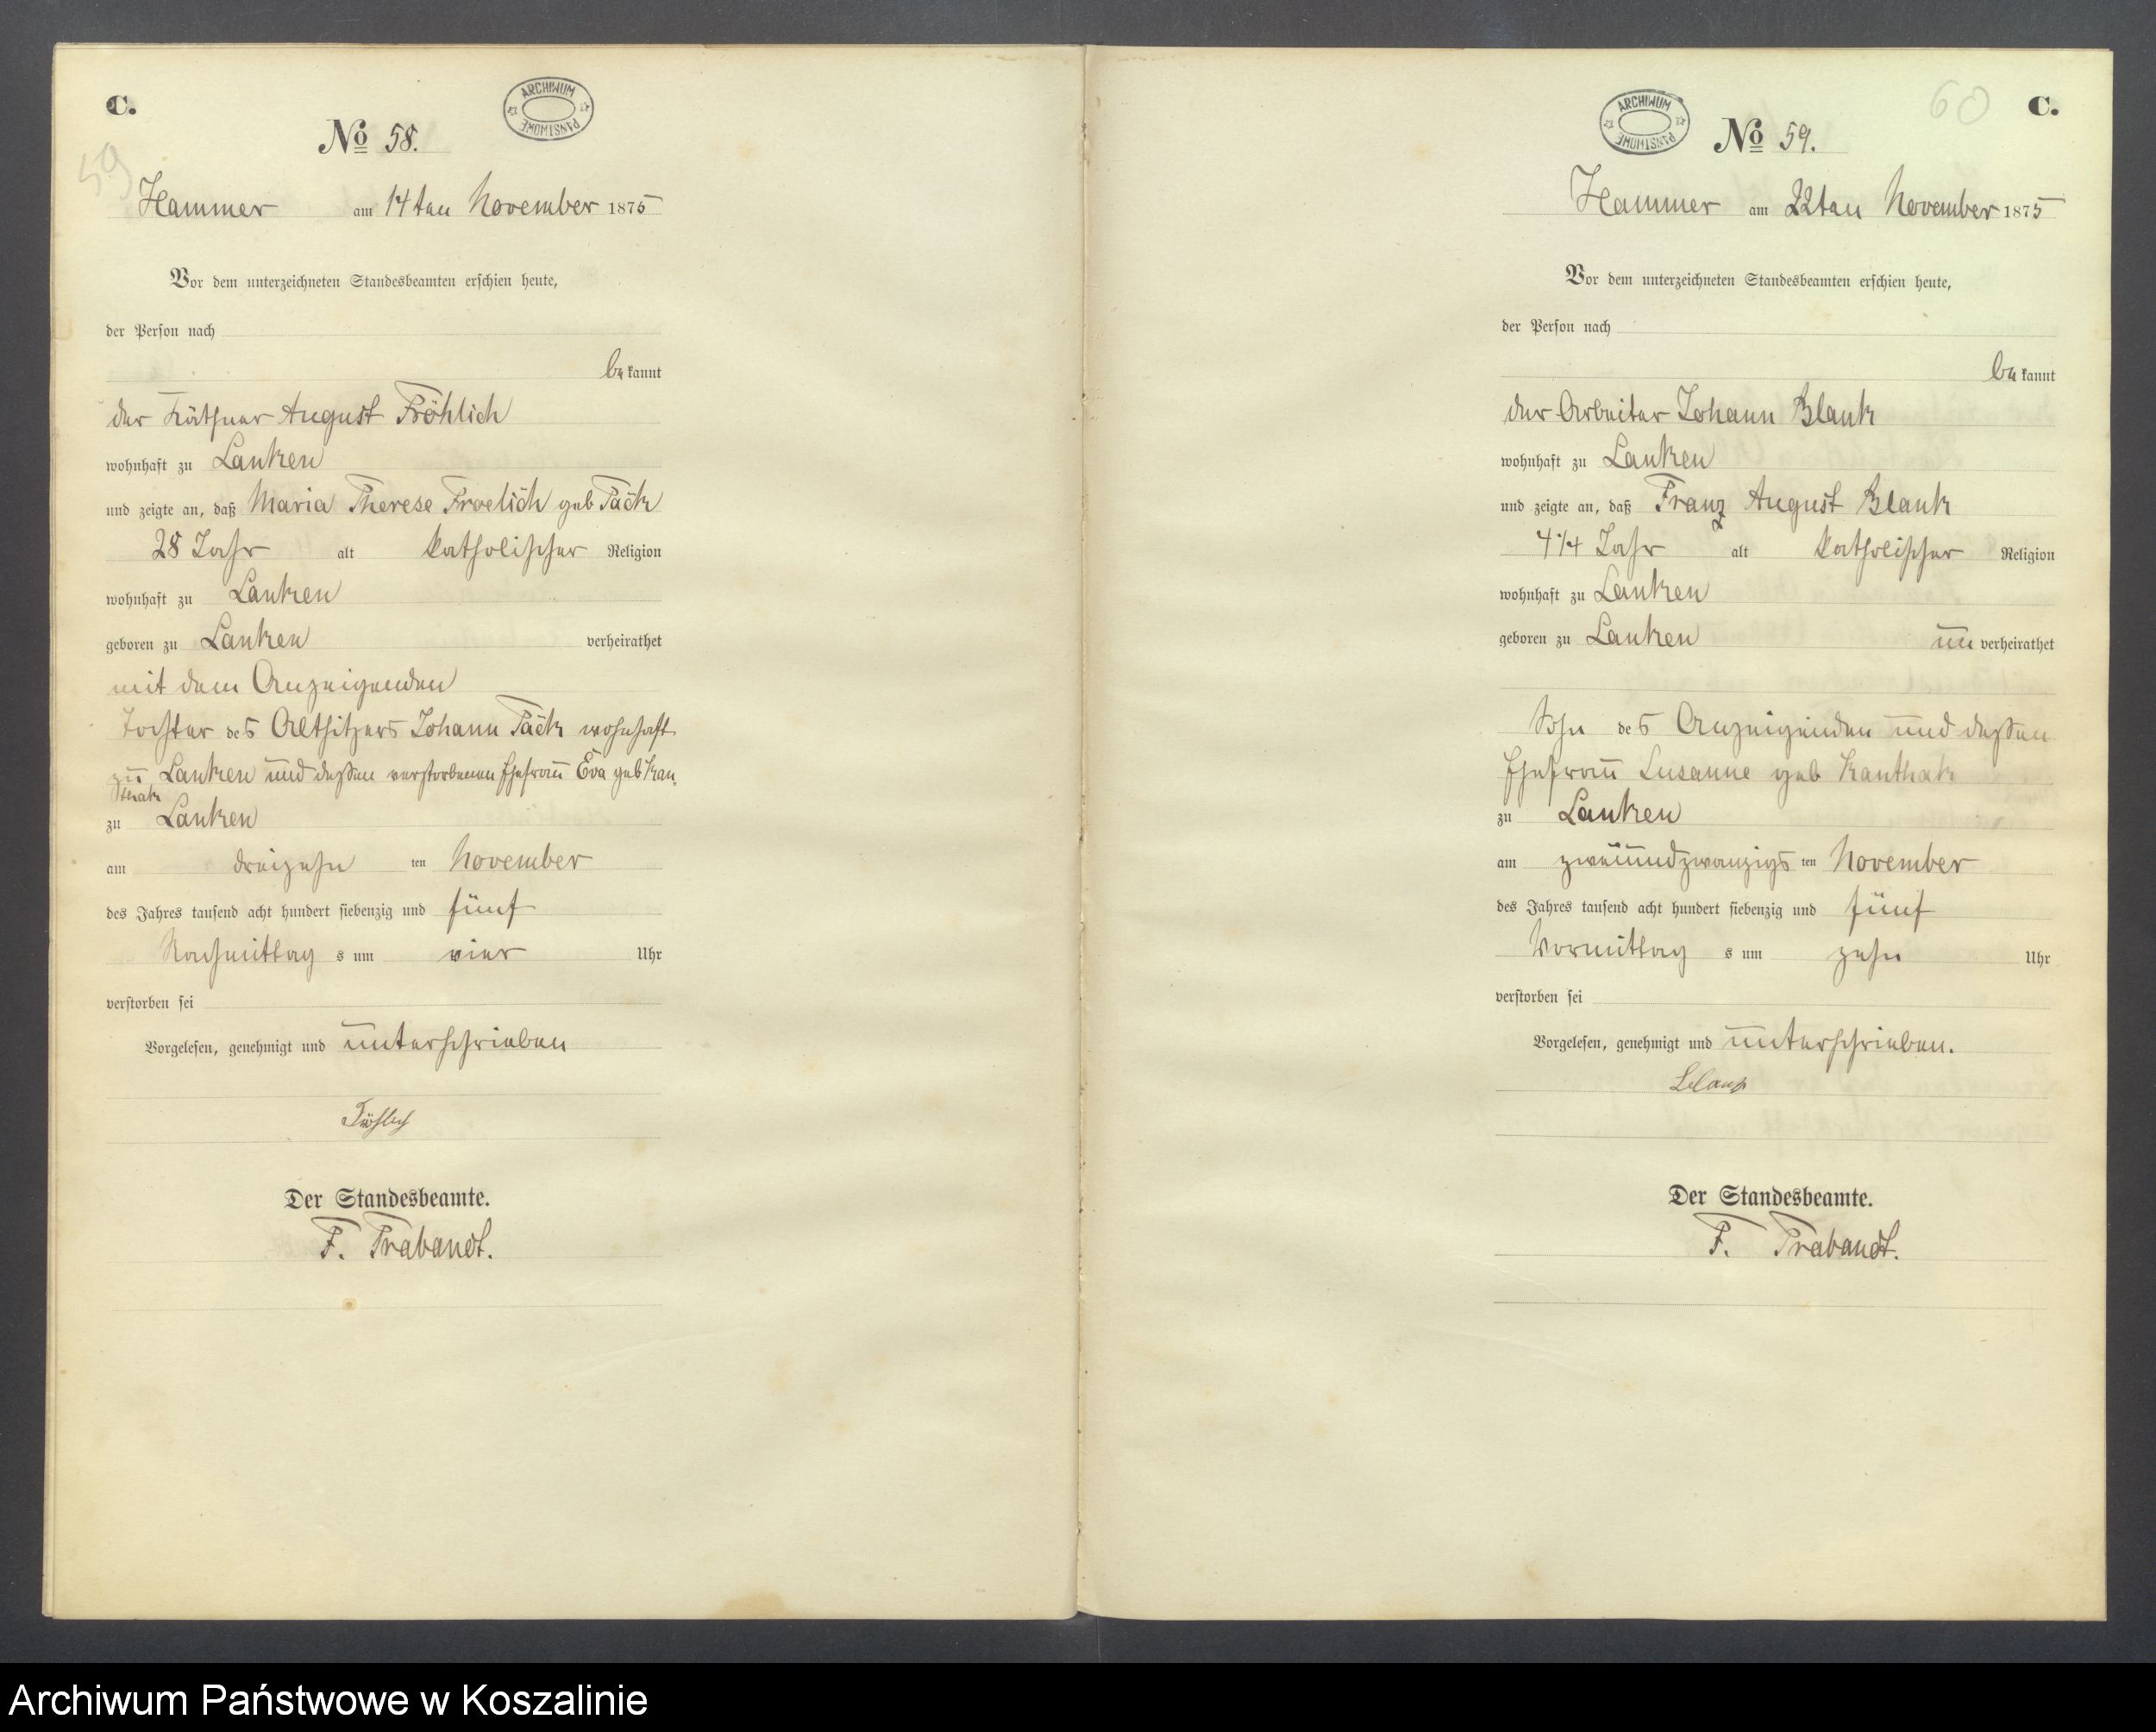 C.
ARCHIWUM PAŃSTWOWE
No 58.
59
Hammer am 14ten November 1875
Vor dem unterzeichneten Standesbeamten erschien heute,
der Person nach
bekannt
der Käthner August Fröhlich
wohnhaft zu Lanken
und zeigte an, daß Maria Therese Froelich geb Päck
28 Jahr alt katholischer Religion
wohnhaft zu Lanken
geboren zu Lanken verheirathet
mit dem Anzeigenden
Tochter des Altsitzers Johann Päck wohnhaft
zu Lanken und dessen verstorbenen Ehefrau Eva geb Kan-
thak
zu Lanken
am dreizehn ten November
des Jahres tausend acht hundert siebenzig und fünf
Nachmittag s um vier Uhr
verstorben sei
Vorgelesen, genehmigt und unterschrieben
Fröhlich
Der Standesbeamte.
F. Trabandt.
60
C.
ARCHIWUM PAŃSTWOWE
No 59.
Hammer am 22ten November 1875
Vor dem unterzeichneten Standesbeamten erschien heute,
der Person nach
bekannt
der Arbeiter Johann Blank
wohnhaft zu Lanken
und zeigte an, daß Franz August Blank
4 1/4 Jahr alt katholischer Religion
wohnhaft zu Lanken
geboren zu Lanken unverheirathet
Sohn des Anzeigenden und dessen
Ehefrau Susanne geb Kanthak
zu Lanken
am zweiundzwanzigs ten November
des Jahres tausend acht hundert siebenzig und fünf
Vormittag s um zehn Uhr
verstorben sei
Vorgelesen, genehmigt und unterschrieben.
Blank
Der Standesbeamte.
F. Trabandt.
Archiwum Państwowe w Koszalinie